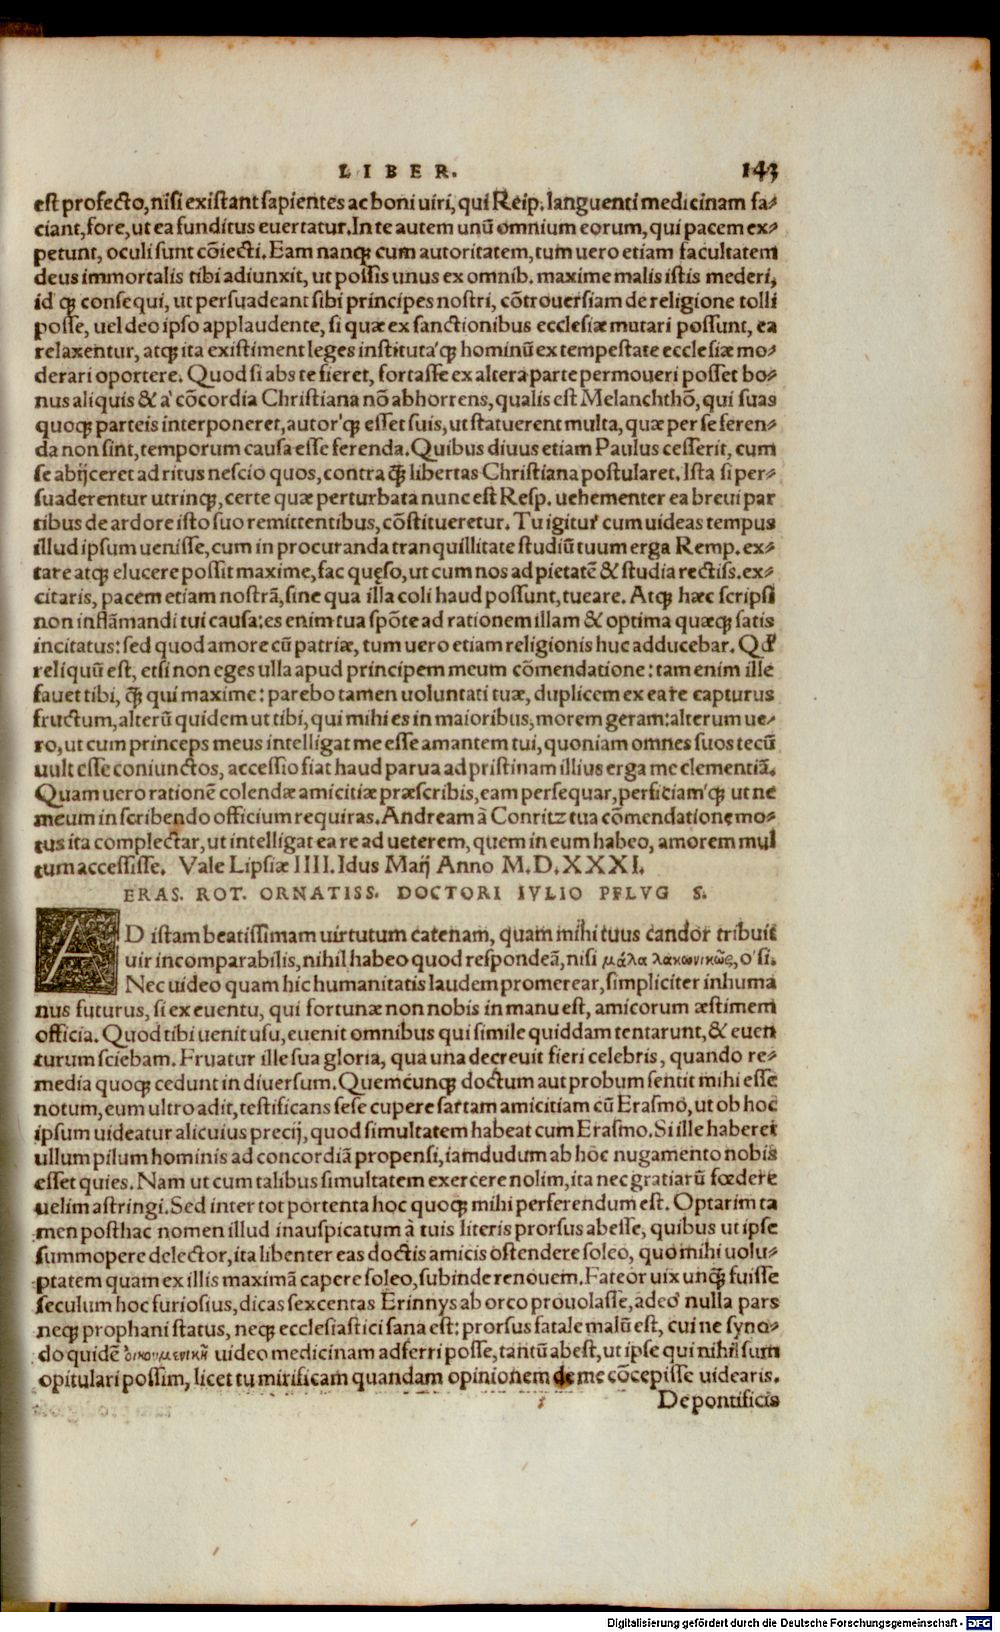 LIBER. 143
est profecto, nisi existant sapientes ac boni uiri, qui Reip. languenti medicinam fa⸗
ciant, fore, ut ea funditus euertatur. In te autem unũ omnium eorum, qui pacem ex⸗
petunt, oculi sunt cõiecti. Eam nanqꝫ cum autoritatem, tum uero etiam facultatem
deus immortalis tibi adiunxit, ut possis unus ex omnib. maxime malis istis mederi,
id qꝫ consequi, ut persuadeant sibi principes nostri, cõtrouersiam de religione tolli
posse, uel deo ipso applaudente, si quæ ex sanctionibus ecclesiæ mutari possunt, ea
relaxentur, atqꝫ ita existiment leges instituta'qꝫ hominũ ex tempestate ecclesiæ mo⸗
derari oportere. Quod si abs te fieret, fortasse ex altera parte permoueri posset bo⸗
nus aliquis & à cõcordia Christiana nõ abhorrens, qualis est Melanchthõ, qui suas
quoqꝫ parteis interponeret, autor'qꝫ esset suis, ut statuerent multa, quæ per se feren⸗
da non sint, temporum causa esse ferenda. Quibus diuus etiam Paulus cesserit, cum
se abijceret ad ritus nescio quos, contra q̃ꝫ libertas Christiana postularet. Ista si per⸗
suaderentur utrinqꝫ, certe quæ perturbata nunc est Resp. uehementer ea breui par
tibus de ardore isto suo remittentibus, cõstitueretur. Tu igitur cum uideas tempus
illud ipsum uenisse, cum in procuranda tranquillitate studiũ tuum erga Remp. ex⸗
tare atqꝫ elucere possit maxime, fac quęso, ut cum nos ad pietatẽ & studia rectiss. ex⸗
citaris, pacem etiam nostrã, sine qua illa coli haud possunt, tueare. Atqꝫ hæc scripsi
non inflãmandi tui causa: es enim tua spõte ad rationem illam & optima quæqꝫ satis
incitatus: sed quod amore cũ patriæ, tum uero etiam religionis huc adducebar. Qd'
reliquũ est, etsi non eges ulla apud principem meum cõmendatione: tam enim ille
fauet tibi, q̃ꝫ qui maxime: parebo tamen uoluntati tuæ, duplicem ex ea re capturus
fructum, alterũ quidem ut tibi, qui mihi es in maioribus, morem geram: alterum ue⸗
ro, ut cum princeps meus intelligat me esse amantem tui, quoniam omnes suos tecũ
uult esse coniunctos, accessio fiat haud parua ad pristinam illius erga me clementiã.
Quam uero rationẽ colendæ amicitiæ præscribis, eam persequar, perficiam'qꝫ ut ne
meum in scribendo officium requiras. Andream à Conritz tua cõmendatione mo⸗
tus ita complectar, ut intelligat ea re ad ueterem, quem in eum habeo, amorem mul
tum accessisse. Vale Lipsiæ IIII. Idus Maij Anno M.D.XXXI.
ERAS. ROT. ORNATISS. DOCTORI IVLIO PFLVG S.
AD istam beatissimam uirtutum catenam, quam mihi tuus candor tribuit
uir incomparabilis, nihil habeo quod respondeã, nisi μάλα λακωνικῶς, ὀ σί.
Nec uideo quam hic humanitatis laudem promerear, simpliciter inhuma
nus futurus, si ex euentu, qui fortunæ non nobis in manu est, amicorum æstimem
officia. Quod tibi uenit usu, euenit omnibus qui simile quiddam tentarunt, & euen
turum sciebam. Fruatur ille sua gloria, qua una decreuit fieri celebris, quando re⸗
media quoqꝫ cedunt in diuersum. Quemcunqꝫ doctum aut probum sentit mihi esse
notum, eum ultro adit, testificans sese cupere sartam amicitiam cũ Erasmo, ut ob hoc
ipsum uideatur alicuius precij, quod simultatem habeat cum Erasmo. Si ille haberet
ullum pilum hominis ad concordiã propensi, iamdudum ab hoc nugamento nobis
esset quies. Nam ut cum talibus simultatem exercere nolim, ita nec gratiarũ fœdere
uelim astringi. Sed inter tot portenta hoc quoqꝫ mihi perferendum est. Optarim ta
men posthac nomen illud inauspicatum à tuis literis prorsus abesse, quibus ut ipse
summopere delector, ita libenter eas doctis amicis ostendere soleo, quo mihi uolu⸗
ptatem quam ex illis maximã capere soleo, subinde renouem. Fateor uix unq̃ꝫ fuisse
seculum hoc furiosius, dicas sexcentas Erinnys ab orco prouolasse, adeo' nulla pars
neqꝫ prophani status, neqꝫ ecclesiastici sana est: prorsus fatale malũ est, cui ne syno⸗
do quidẽ οἰκουμενικῆ uideo medicinam adferri posse, tantũ abest, ut ipse qui nihil sum
opitulari possim, licet tu mirificam quandam opinionem de me cõcepisse uidearis.
De pontificis
Digitalisierung gefördert durch die Deutsche Forschungsgemeinschaft - DFG